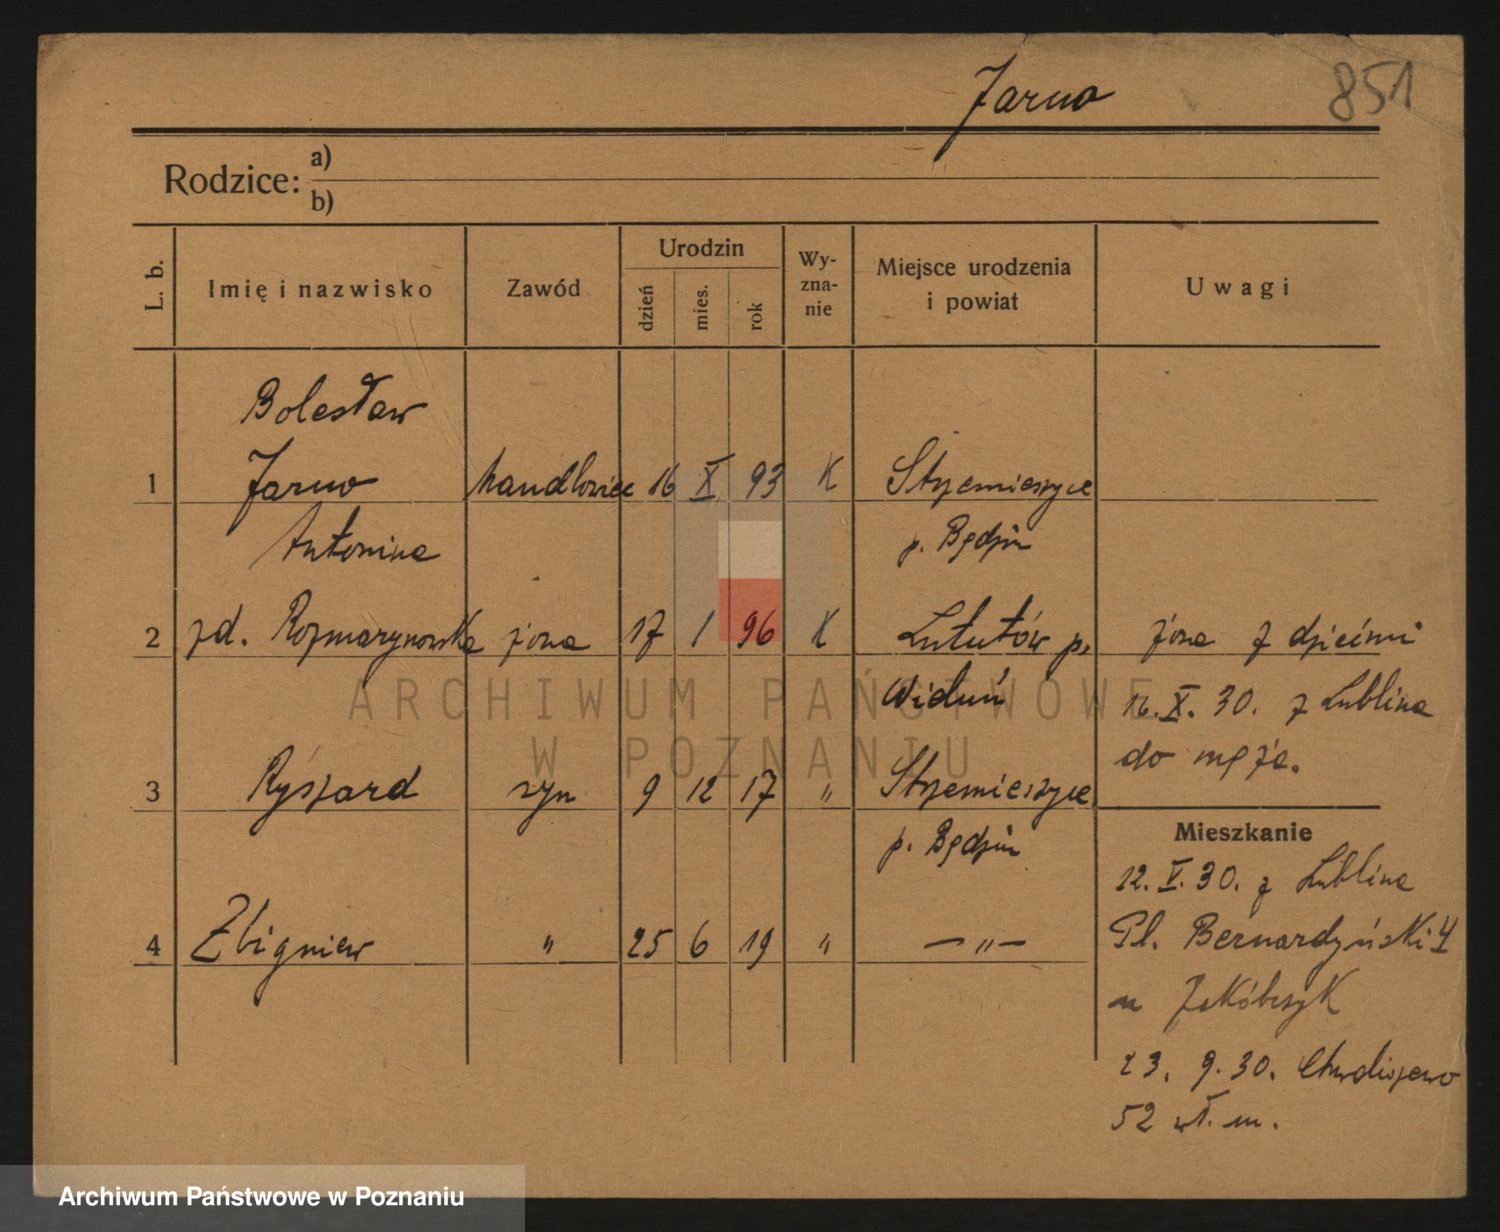 Jarno
851
Rodzice: a)
b)
L. b.
Imię i nazwisko
Zawód
Urodzin
dzień
mies.
rok
Wy-
zna-
nie
Miejsce urodzenia
i powiat
Uwagi
Bolesław
1 Jarno handlowiec 16 X 93 K Strzemieszyce
Antonina p. Będzin
2 zd. Rozmarynowska żona 17 1 96 K Lututów p. żona z dziećmi
Wieluń 16. X. 30. z Lublina
do męża.
3 Ryszard syn 9 12 17 " Strzemieszyce
p. Będzin
Mieszkanie
12. V. 30. z Lublina
4 Zbigniew " 25 6 19 " — " — Pl. Bernardyński 4
u Jakóbczyk
23. 9. 30. Chwaliszewo
52 wł. m.
ARCHIWUM PAŃSTWOWE
W POZNANIU
Archiwum Państwowe w Poznaniu